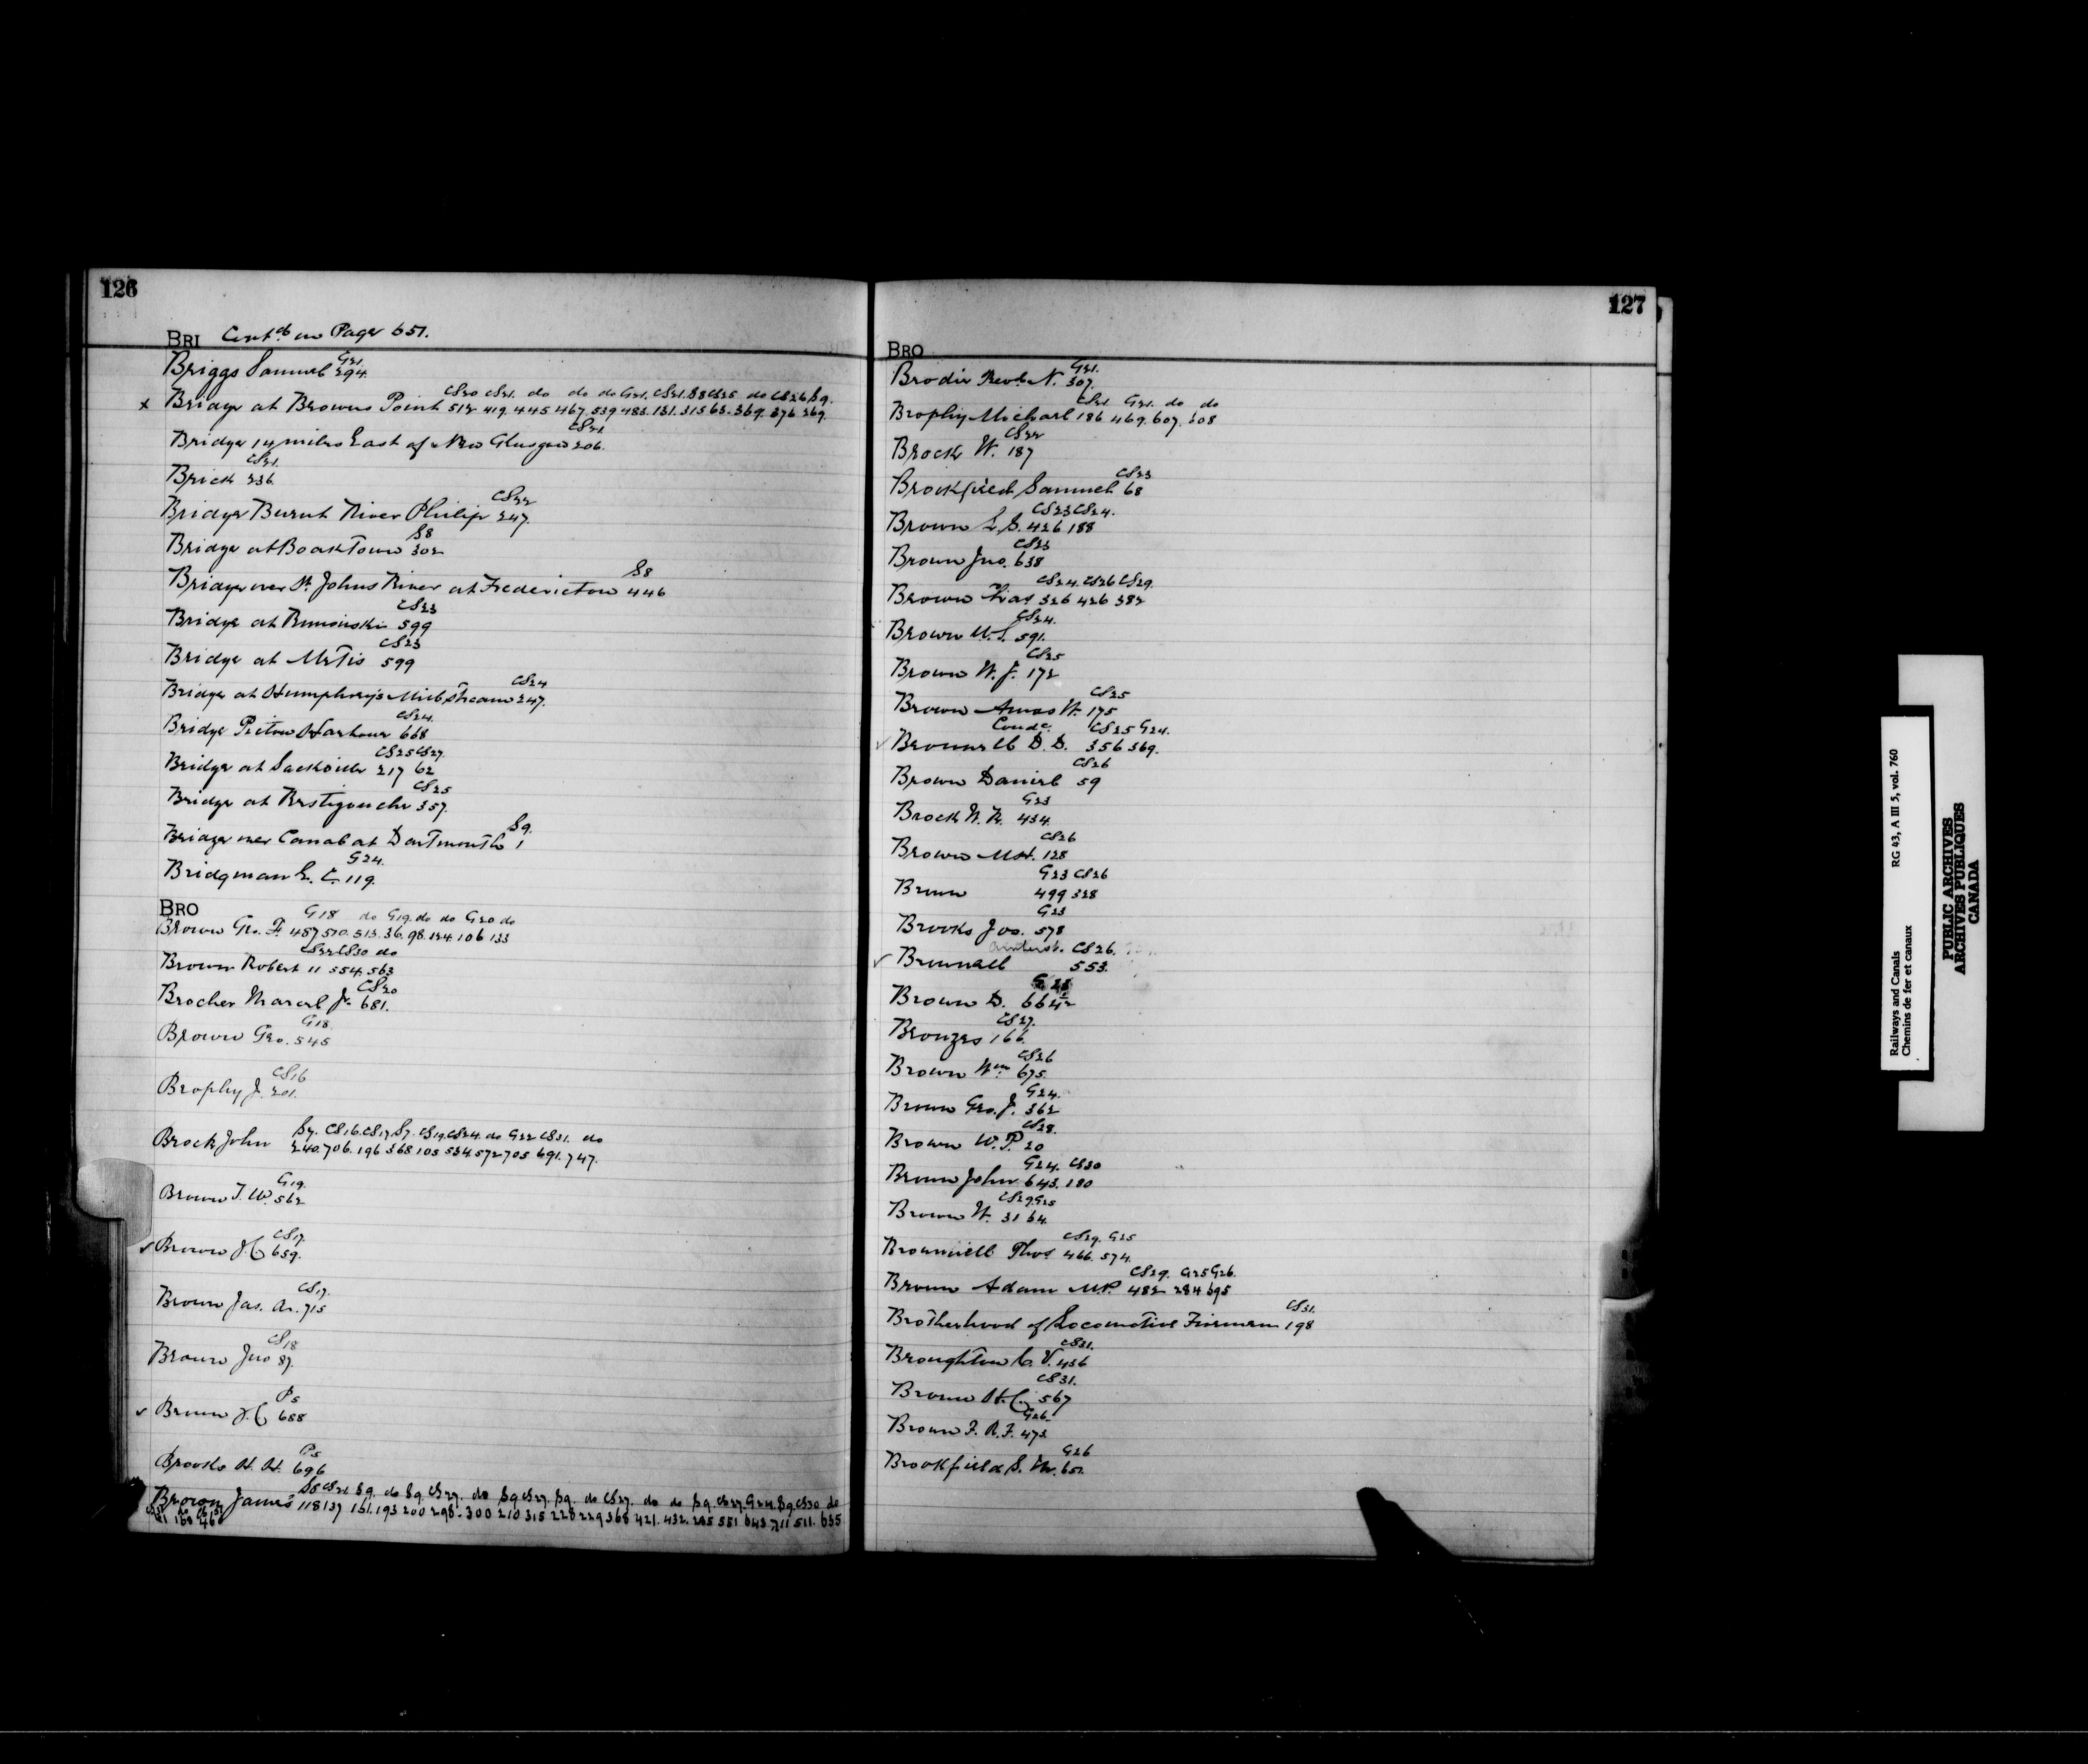 126
BRI Contd on Page 651.
G21.
Briggs Samuel 294.
CS20 CS21. do do do G21. CS21. S8 CS25 do CS26 S9.
x Bridge at Browns Point 512 419. 445 467. 539 483. 131. 315 63. 369. 376 269.
CS21.
Bridge 14 miles East of New Glasgow 206.
CS21.
Brick 236
CS22
Bridge Burnt River Philip 247.
S8
Bridge at Boaktown 302
S8
Bridge over St. Johns River at Fredericton 446
CS23
Bridge at Rimouski 599
CS23
Bridge at Metis 599
CS24
Bridge at Humphreys Mill Stream 247.
CS24.
Bridge Pictou Harbour 668
CS25 CS27.
Bridge at Sackville 217 62
CS25
Bridge at Restigouche 357.
S9.
Bridge over Canal at Dartmouth 1
G24.
Bridgman E. C. 119.
BRO
G18 do G19. do do G20 do
Brown Geo. F. 487 570. 513. 36. 98. 124 106 133
CS22 CS30 do
Brown Robert 11 554. 563
CS20
Brocher Marcel Jr. 681.
G18.
Brown Geo. 545
CS16
Brophy J. 201.
S7. CS16. CS17. S7. CS19. CS24. do G22 CS31. do
Brock John 240. 706. 196 368 103 534. 572 703 691. 747.
G19.
Brown T. W. 562
CS17.
✓ Brown J. C 659.
CS17.
Brown Jas. A. 715
CS18
Brown Jno 87.
P5
✓ Brown J. C 688
P5
Brooks H. H. 696
S8 CS21 S9. do S9. CS27. do S9 CS27. S9. do CS27. do do S9. CS27. G24. S9. CS30 do
Brown James 118 137 151. 193 200 298. 300 210 315 228 229 368 421. 432. 285 551 643 711 511. 635
127
BRO
G21.
Brodie Revd. N. 307.
CS21 G21. do do
Brophy Michael 186 469. 607. 608
CS22
Brock W. 187
CS23
Brookfield Samuel 68
CS23 CS24.
Brown L. S. 426 188
CS23
Brown Jno. 638
CS24. CS26 CS29.
Brown Thos 326 426 382
CS24.
Brown W. S. 591.
CS25
Brown W. J. 172
CS25
Brown Amos W. 175
Condr. CS25 G24.
✓ Brownell D. D. 356 369.
CS26
Brown Daniel 59
G23
Brock W. R. 434.
CS26
Brown 128
G23 CS26
Brown 499 328
G23
Brooks Jos. 578
Amherst. CS26.
✓ Brownell 553.
Brown D. 664
CS27.
Bronzes 166.
CS26
Brown Wm. 675.
G24.
Brown Geo. J. 362
CS28.
Brown W. P. 20
G24. CS30
Brown John 643. 180
CS29. G25
Brown W. 31 64.
CS29. G25
Brownell Thos 466. 574.
CS29. G25 G26.
Brown Adam M.P. 482 284 695
CS31.
Brotherhood of Locomotive Firemen 198
CS31.
Broughton C. V. 436
CS31.
Brown H. C. 567
G26.
Brown F. R. F. 473.
G26
Brookfield S. M. 651.
Railways and Canals RG 43, A III 5, vol. 760
Chemins de fer et canaux
PUBLIC ARCHIVES
ARCHIVES PUBLIQUES
CANADA